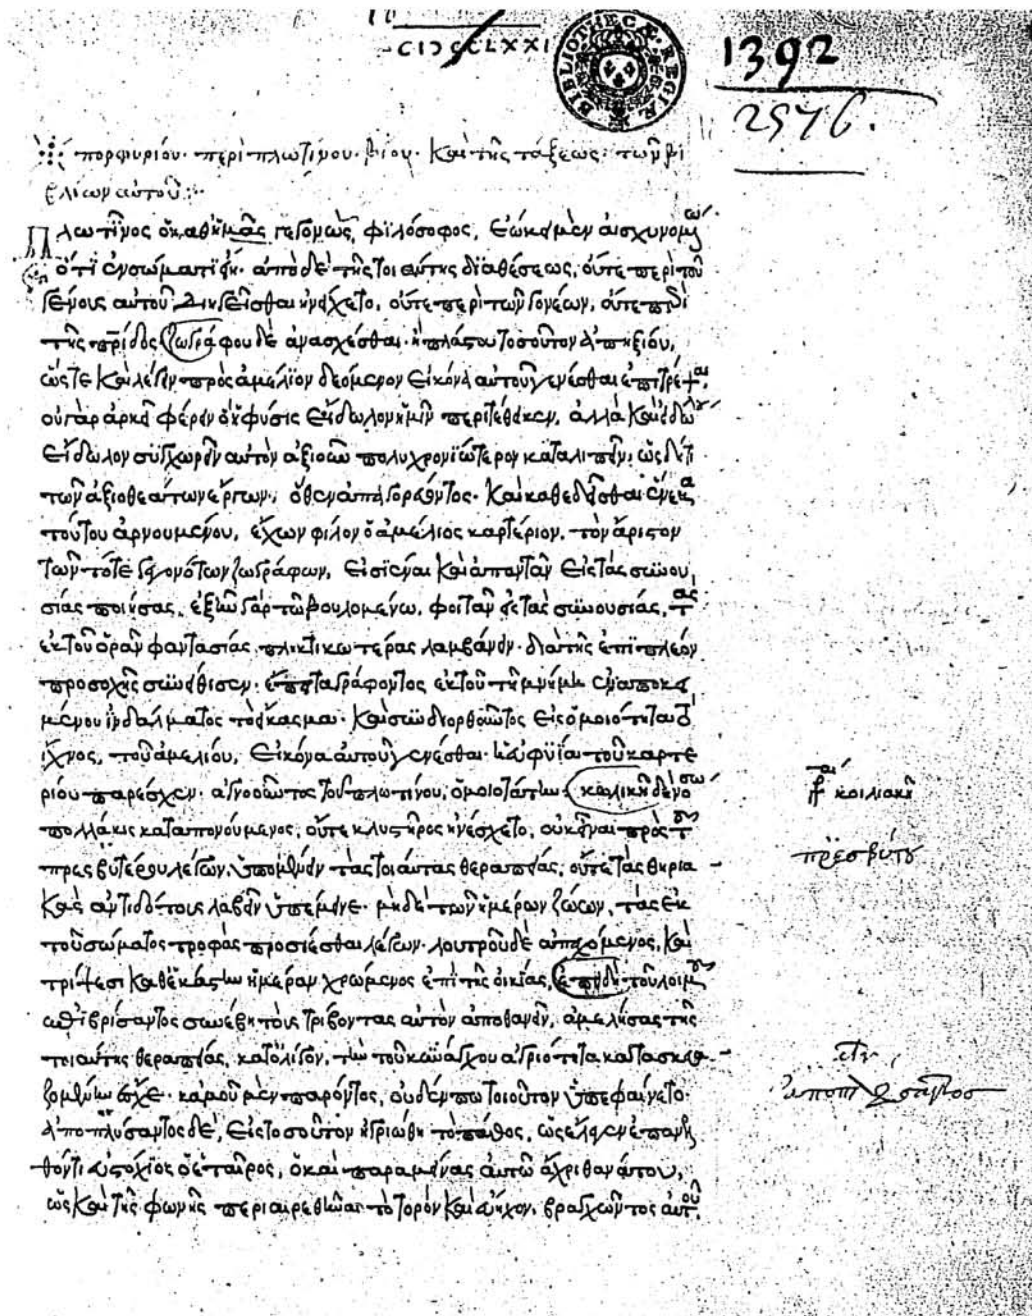 CIƆIƆCCLXXI
BIBLIOTHECÆ REGIÆ
1392
2576.
πορφυρίου· περὶ πλωτίνου· βίου· καὶ τῆς τάξεως· τῶν βι
βλίων αὐτοῦ:
Πλωτῖνος ὁ καθ' ἡμᾶς γεγονὼς φιλόσοφος, ἐώκει μὲν αἰσχυνομένω
ὅτι ἐν σώματι εἴη· ἀπὸ δὲ τῆς τοιαύτης διαθέσεως, οὔτε περὶ τοῦ
γένους αὐτοῦ διηγεῖσθαι ἠνείχετο, οὔτε περὶ τῶν γονέων, οὔτε περὶ
τῆς πατρίδος ζωγράφου δὲ ἀνασχέσθαι ἢ πλάστου τοσοῦτον ἀπηξίου,
ὥστε καὶ λέγειν πρὸς ἀμέλιον δεόμενον εἰκόνα αὐτοῦ γενέσθαι ἐπιτρέψαι,
οὐ γὰρ ἀρκεῖ φέρειν ὃ ἡ φύσις εἴδωλον ἡμῖν περιτέθεικεν, ἀλλὰ καὶ εἰδώλου
εἴδωλον συγχωρεῖν αὐτὸν ἀξιοῦν πολυχρονιώτερον καταλιπεῖν, ὡς δή τι
τῶν ἀξιοθεάτων ἔργων, ὅθεν ἀπαγορεύοντος· καὶ καθεδεῖσθαι ἕνεκα
τούτου ἀρνουμένου, ἔχων φίλον ὁ ἀμέλιος καρτέριον, τὸν ἄριστον
τῶν τότε γεγονότων ζωγράφων, εἰσιέναι καὶ ἀπαντᾶν εἰς τὰς συνου
σίας ποιήσας, ἐξῆν γὰρ τῶ βουλομένω, φοιτᾶν εἰς τὰς συνουσίας, τὰς
ἐκ τοῦ ὁρᾶν φαντασίας πληκτικωτέρας λαμβάνειν· διὰ τῆς ἐπὶ πλέον
προσοχῆς συνείθισεν· ἔπειτα γράφοντος ἐκ τοῦ τῆ μνήμη ἐναποκει
μένου ἰνδάλματος τὸ εἴκασμα· καὶ συνδιορθοῦντος εἰς ὁμοιότητα τὸ
ἴχνος, τοῦ ἀμελίου, εἰκόνα αὐτοῦ γενέσθαι· ἡ εὐφυΐα τοῦ καρτε
ρίου παρέσχεν· ἀγνοοῦντος τοῦ πλωτίνου, ὁμοιοτάτην· κωλικῆ δὲ νόσω
πολλάκις καταπονούμενος, οὔτε κλυστῆρος ἠνέσχετο, οὐκ εἶναι πρὸς τοῦ
πρεσβυτέρου λέγων, ὑπομένειν τὰς τοιαύτας θεραπείας, οὔτε τὰς θηρια
κὰς ἀντιδότους λαβεῖν ὑπέμεινε· μηδὲ τῶν ἡμέρων ζώων, τὰς ἐκ
τοῦ σώματος τροφὰς προσίεσθαι λέγων· λουτροῦ δὲ ἀπεχόμενος, καὶ
τρίψεσι καθ' ἑκάστην ἡμέραν χρώμενος ἐπὶ τῆς οἰκίας, ἐπειδὴ τοῦ λοιμοῦ
ἐπιβρίσαντος συνέβη τοὺς τρίβοντας αὐτὸν ἀποθανεῖν, ἀμελήσας τῆς
τοιαύτης θεραπείας, κατ' ὀλίγον, τὴν τοῦ κυνάγχου ἀγριότητα κατασκευα
ζομένην ἔσχε· καὶ μοῦ μὲν παρόντος, οὐδέν πω τοιοῦτον ὑπεφαίνετο·
ἀποπλεύσαντος δὲ, εἰς τοσοῦτον ἠγριώθη τὸ πάθος, ὡς ἔλεγεν ἐπανελ
θόντι εὐστόχιος ὁ ἑταῖρος, ὁ καὶ παραμείνας αὐτῶ ἄχρι θανάτου,
ὡς καὶ τῆς φωνῆς περιαιρεθῆναι τὸ τορὸν καὶ εὔηχον, βραγχῶντος αὐτοῦ
κοιλιακῆ
πρεσβύτου